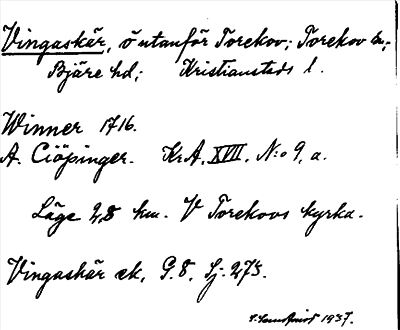 Vingaskär, ö utanför Torekov; Torekov sn;
Bjäre hd; Kristianstads l.
Winner 1716.
A. Ciöpinger. Kr.A. XVII. N:o 9, a.
Läge 2,8 km. V Torekovs kyrka.
Vingaskär ek. G.8. Sj. 273.
1937.